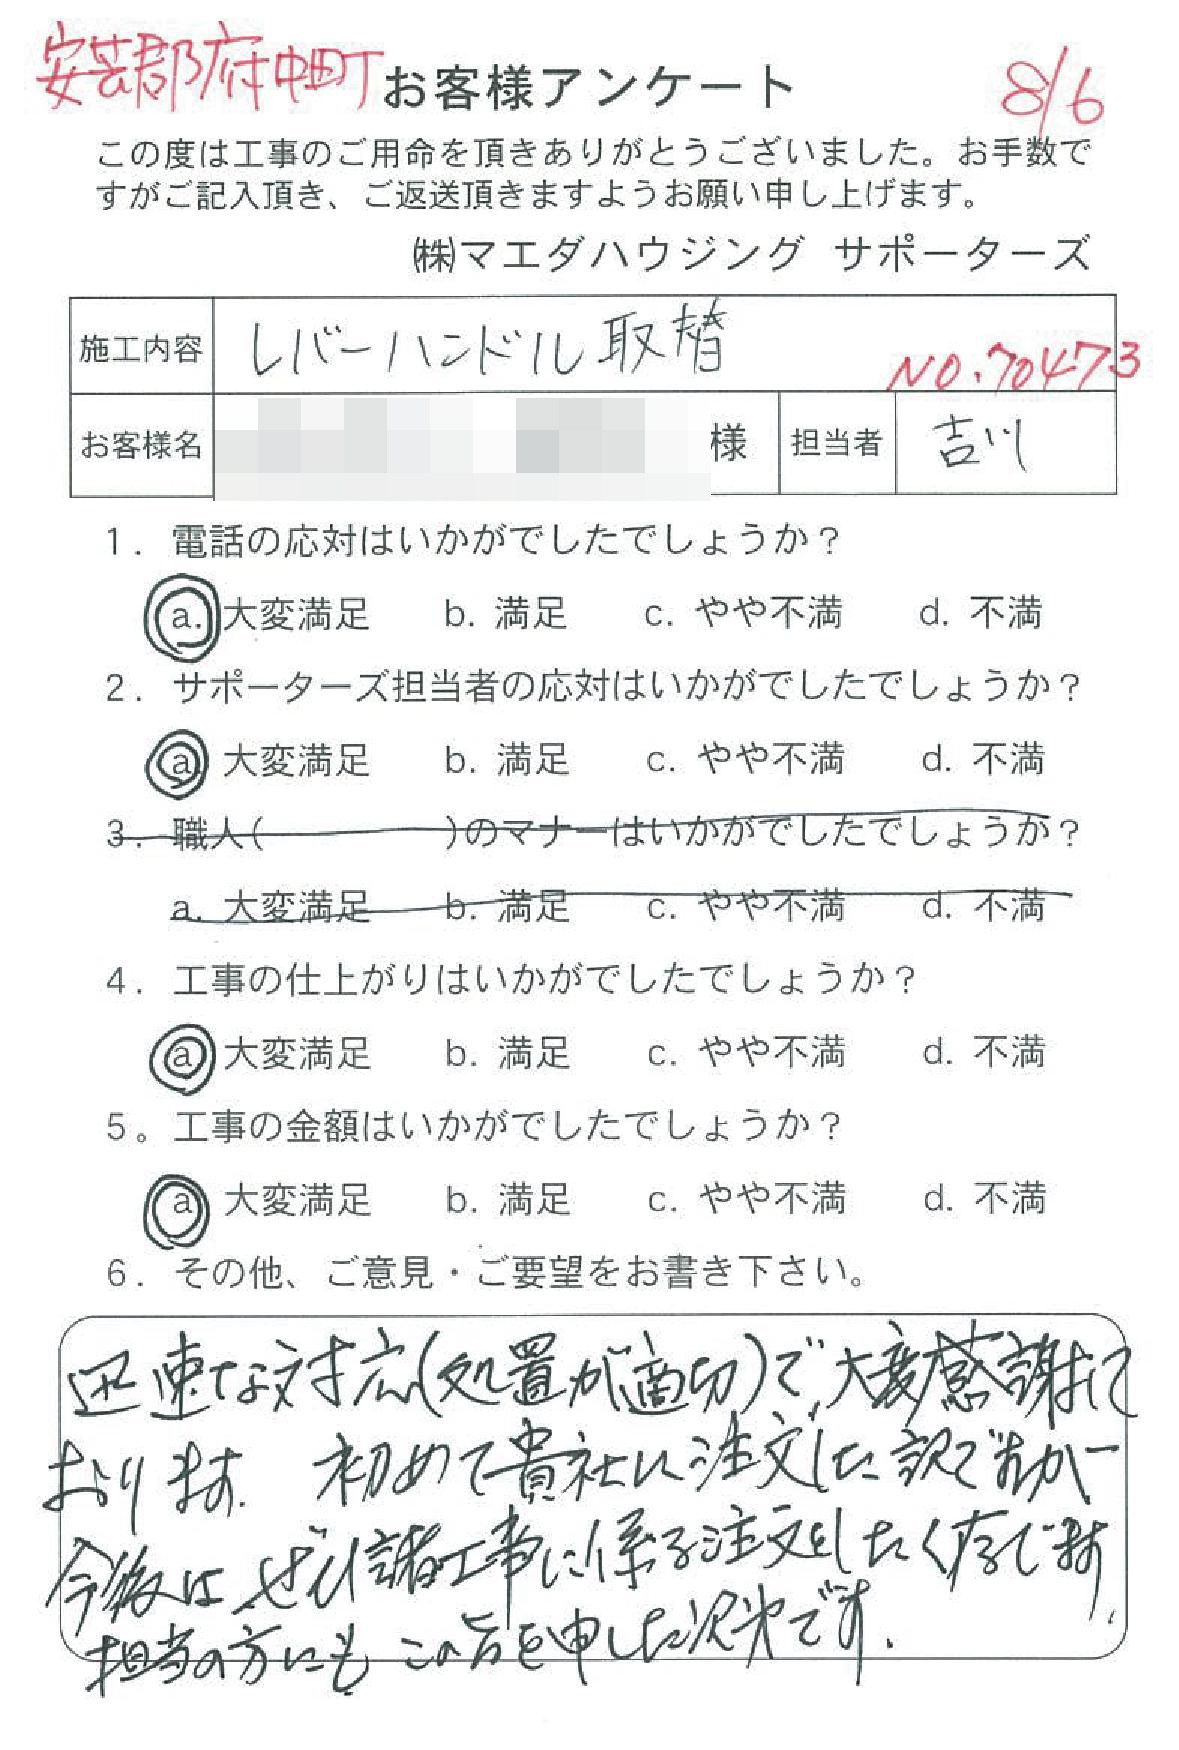 安芸郡府中町 お客様アンケート 8/6
この度は工事のご用命を頂きありがとうございました。お手数で
すがご記入頂き、ご返送頂きますようお願い申し上げます。
㈱マエダハウジング サポーターズ
施工内容 レバーハンドル取替 NO.70473
お客様名 様 担当者 吉川
1. 電話の応対はいかがでしたでしょうか?
a. 大変満足 b. 満足 c. やや不満 d. 不満
2. サポーターズ担当者の応対はいかがでしたでしょうか?
a 大変満足 b. 満足 c. やや不満 d. 不満
3. 職人( )のマナーはいかがでしたでしょうか?
a. 大変満足 b. 満足 c. やや不満 d. 不満
4. 工事の仕上がりはいかがでしたでしょうか?
a 大変満足 b. 満足 c. やや不満 d. 不満
5。工事の金額はいかがでしたでしょうか?
a 大変満足 b. 満足 c. やや不満 d. 不満
6. その他、ご意見・ご要望をお書き下さい。
迅速な対応(処置が適切)で大変感謝して
おります. 初めて貴社に注文した訳ですが
今後はぜひ諸工事に係る注文をしたく存じます.
担当の方にもこの旨を申した次第です.